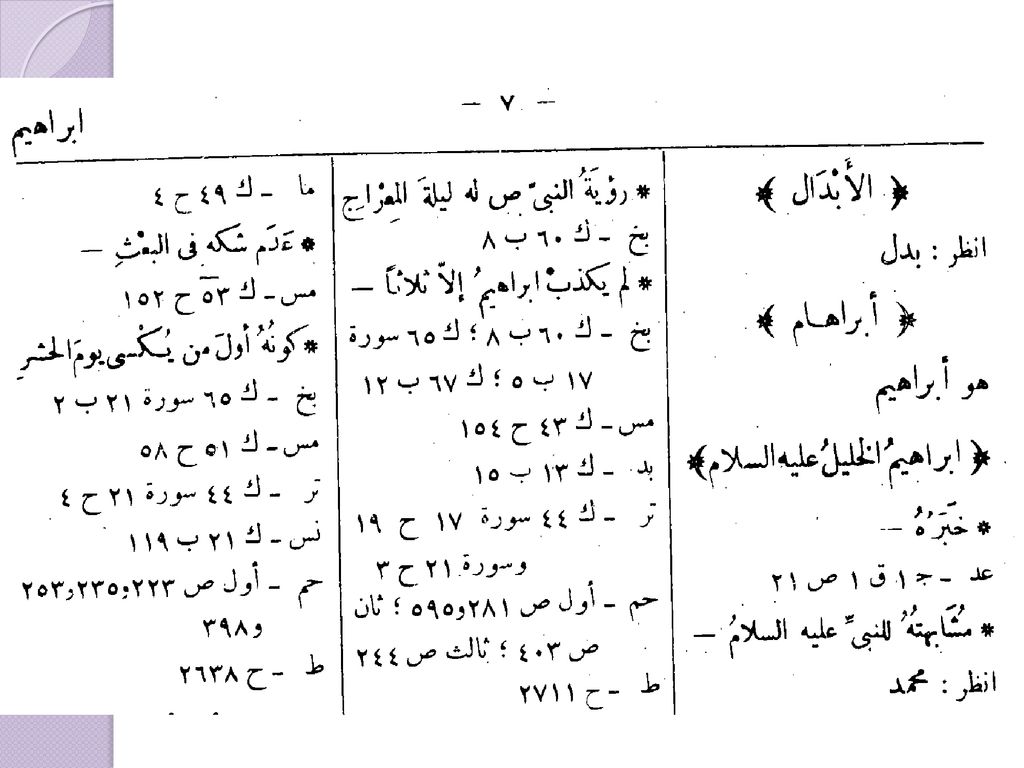 — ٧ —
ابراهيم
﴿ الأَبْدَال ﴾
انظر : بدل
﴿ أبراهام ﴾
هو أبراهيم
﴿ ابراهيمُ الخليلُ عليه السلام ﴾
* خَبَرُهُ —
عد - ج ١ ق ١ ص ٢١
* مُشَابهتُهُ للنبيِّ عليه السلامُ —
انظر : محمد
* رؤيَةُ النبيّ ص له ليلةَ المِعْراجِ
بخ - ك ٦٠ ب ٨
* لم يكذبْ ابراهيمُ إلاّ ثلاثاً —
بخ - ك ٦٠ ب ٨ ؛ ك ٦٥ سورة
١٧ ب ٥ ؛ ك ٦٧ ب ١٢
مس - ك ٤٣ ح ١٥٤
بد - ك ١٣ ب ١٥
تر - ك ٤٤ سورة ١٧ ح ١٩
وسورة ٢١ ح ٣
حم - أول ص ٢٨١ و٥٩٥ ؛ ثان
ص ٤٠٣ ؛ ثالث ص ٢٤٤
ط - ح ٢٧١١
ما - ك ٤٩ ح ٤
* عَدَم شكه فى البعْثِ —
مس - ك ٥٣ ح ١٥٢
* كونُهُ أولَ من يُكْسى يومَ الحشرِ
بخ - ك ٦٥ سورة ٢١ ب ٢
مس - ك ٥١ ح ٥٨
تر - ك ٤٤ سورة ٢١ ح ٤
نس - ك ٢١ ب ١١٩
حم - أول ص ٢٢٣ و٢٣٥ و٢٥٣
و٣٩٨
ط - ح ٢٦٣٨